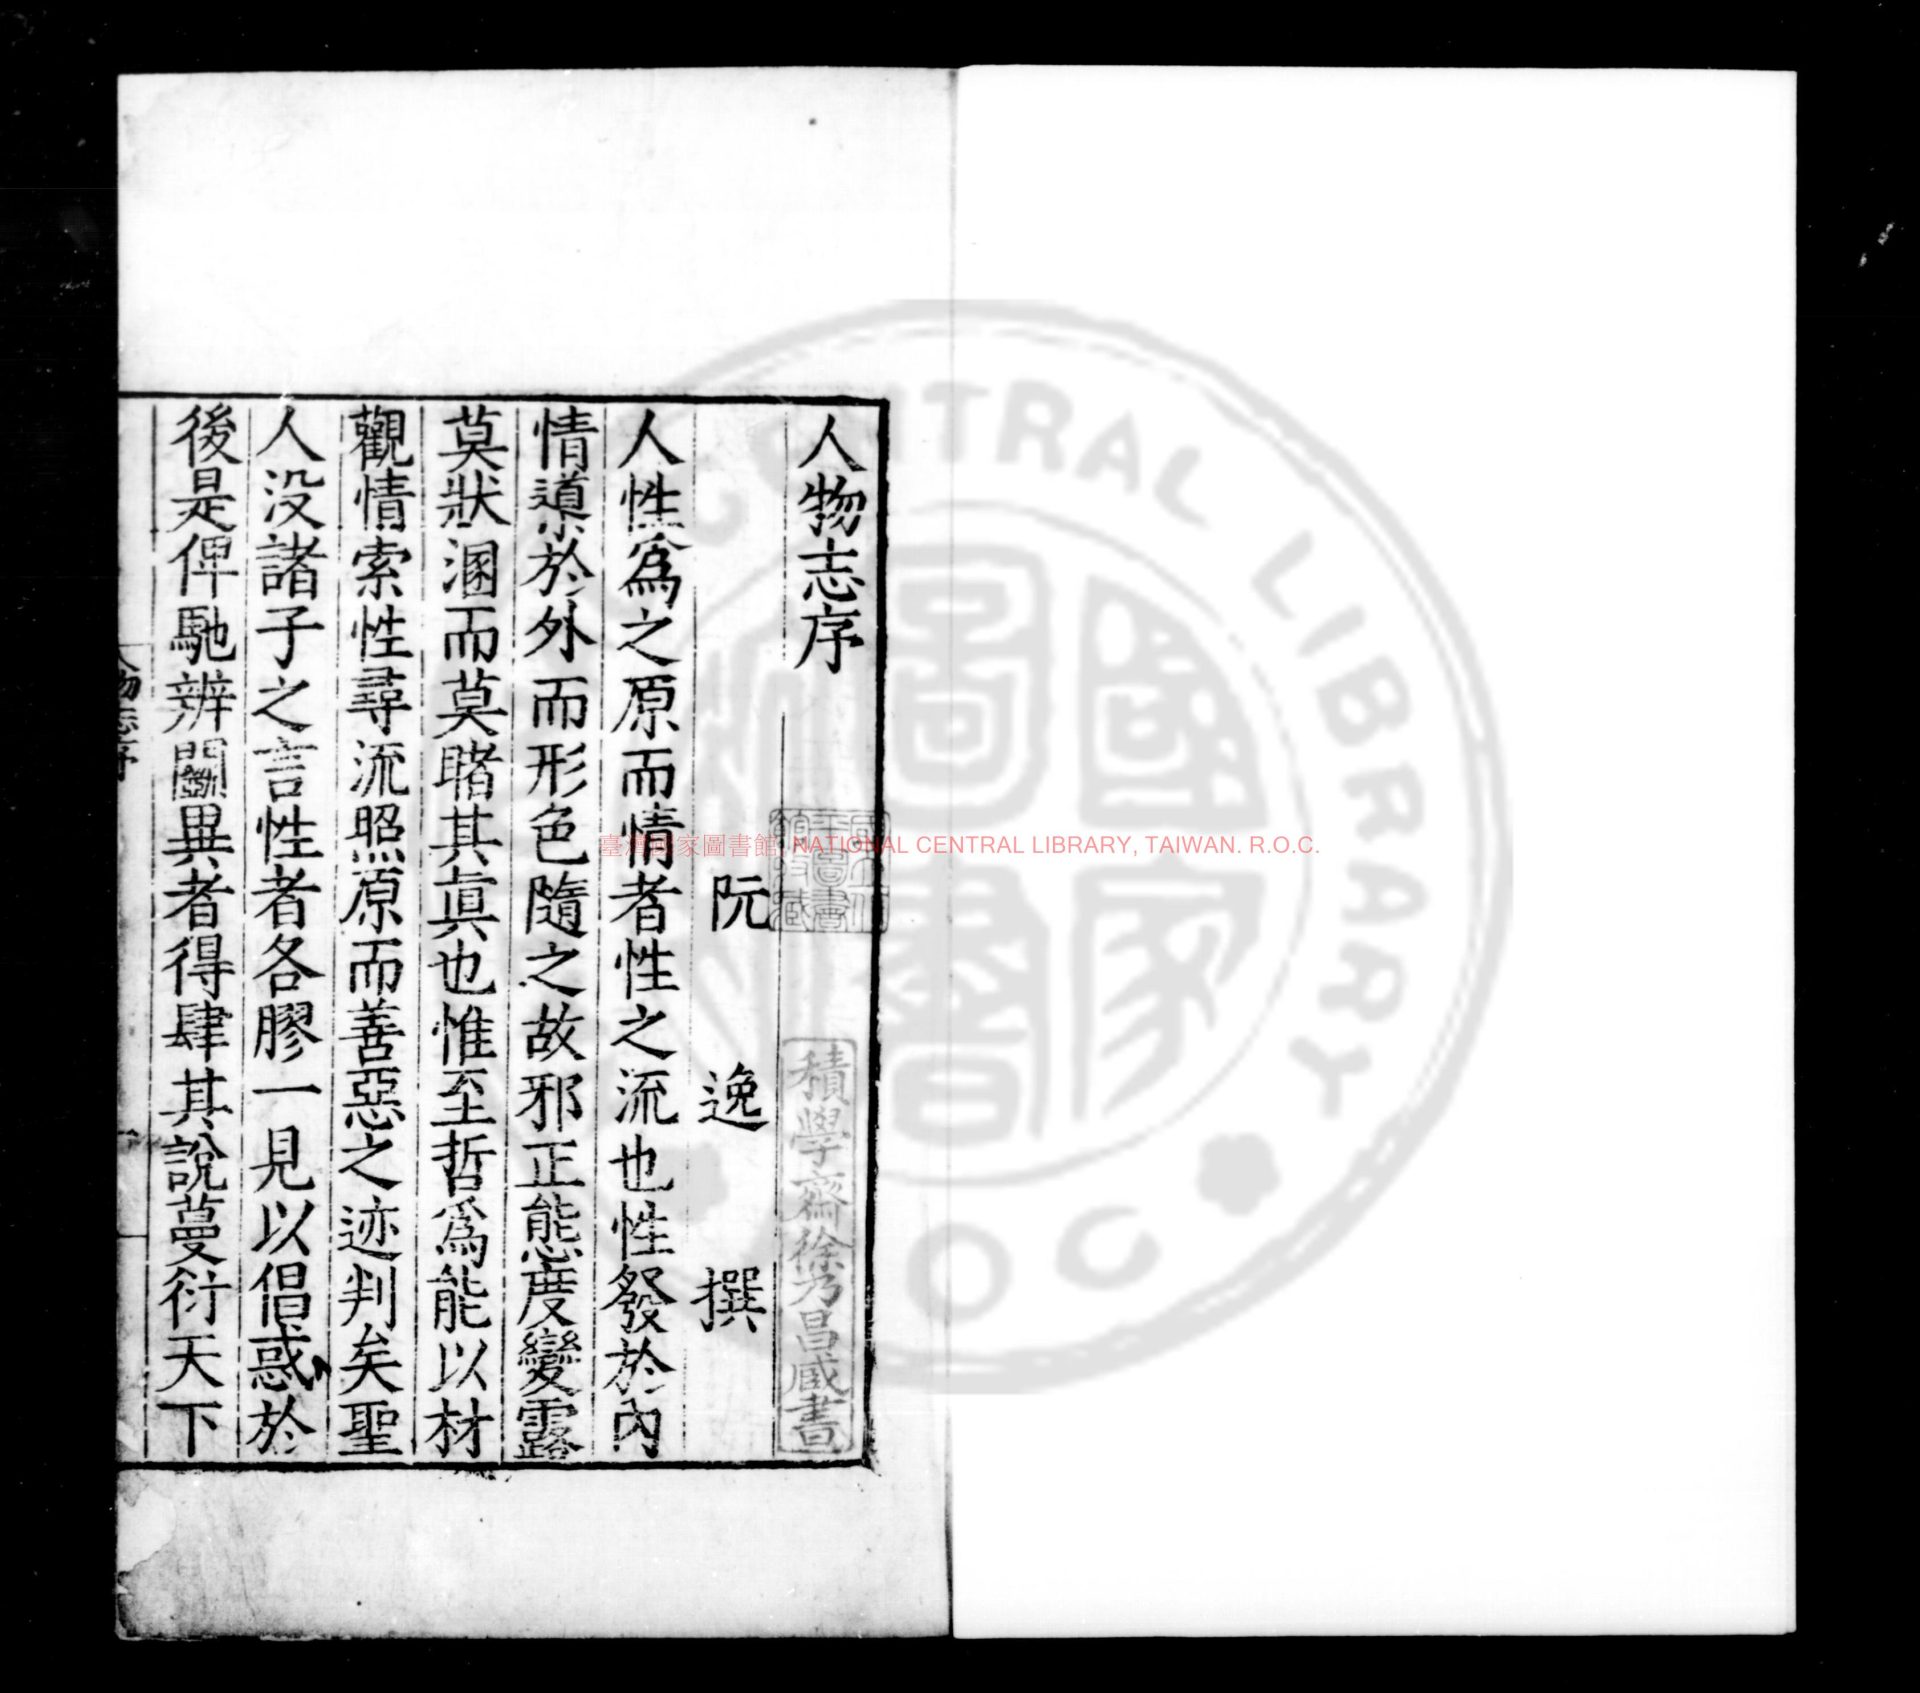 人物志序
阮逸撰
人性為之原而情者性之流也性發於內
情導於外而形色隨之故邪正態度變露
莫狀溷而莫睹其真也惟至哲為能以材
觀情索性尋流照原而善惡之迹判矣聖
人沒諸子之言性者各膠一見以倡惑於
後是俾馳辨鬭異者得肆其說蔓衍天下
人物志序
積學齋徐乃昌藏書
臺灣國家圖書館, NATIONAL CENTRAL LIBRARY, TAIWAN. R.O.C.
CENTRAL LIBRARY
國家圖書